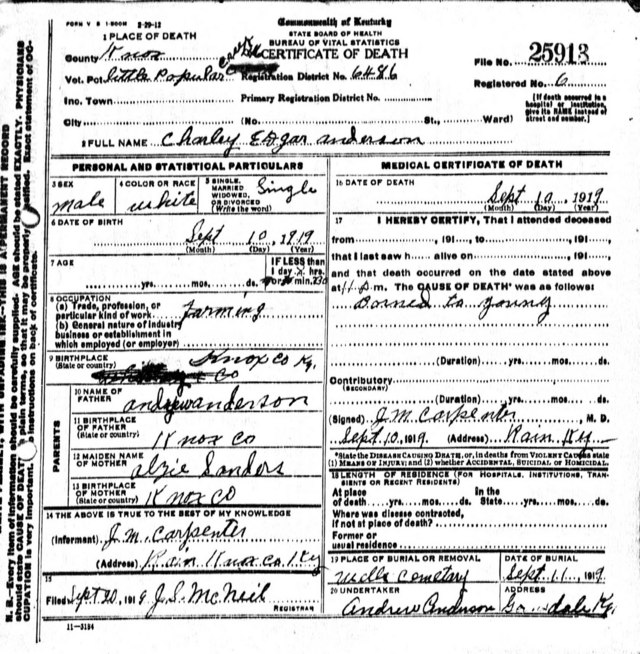 FORM V S 1-500M 8-29-12
1 PLACE OF DEATH
Commonwealth of Kentucky
STATE BOARD OF HEALTH
BUREAU OF VITAL STATISTICS
CERTIFICATE OF DEATH
County Knox
Vot. Pct. little Popular
Registration District No. 6486
File No. 25913
Registered No. 6
Inc. Town
Primary Registration District No.
[If death occurred in a hospital or institution, give its NAME instead of street and number.]
City (No. St., Ward)
2 FULL NAME Charley Edgar anderson
PERSONAL AND STATISTICAL PARTICULARS
3 SEX
male
4 COLOR OR RACE
white
5 SINGLE, MARRIED WIDOWED, OR DIVORCED (Write the word)
Single
6 DATE OF BIRTH
Sept 10, 1919
(Month) (Day) (Year)
7 AGE
IF LESS than
1 day hrs.
yrs. mos. ds. or min. 230
8 OCCUPATION
(a) Trade, profession, or
particular kind of work farming
(b) General nature of industry
business or establishment in
which employed (or employer)
9 BIRTHPLACE
(State or country)
Knox co Ky.
Co
PARENTS
10 NAME OF FATHER
andyewanderson
11 BIRTHPLACE OF FATHER
(State or country)
Knox Co
12 MAIDEN NAME OF MOTHER
alzie Sanders
13 BIRTHPLACE OF MOTHER
(State or country)
Knox co
14 THE ABOVE IS TRUE TO THE BEST OF MY KNOWLEDGE
(Informant) J. M. Carpenter
(Address) Rain Knox co. Ky
15
Filed Sept 20, 1919 J.S. McNeil
REGISTRAR
11-3184
MEDICAL CERTIFICATE OF DEATH
16 DATE OF DEATH
Sept 10, 1919
(Month) (Day) (Year)
17 I HEREBY CERTIFY, That I attended deceased
from , 191 , to , 191 ,
that I last saw h alive on , 191 ,
and that death occurred on the date stated above
at 11 a.m. The CAUSE OF DEATH* was as follows:
Borned to young
(Duration) yrs. mos. ds.
Contributory
(SECONDARY)
(Duration) yrs. mos. ds.
(Signed) J. M. Carpenter, M. D.
Sept. 10, 1919 (Address) Rain, Ky
*State the DISEASE CAUSING DEATH, or, in deaths from VIOLENT CAUSES state
(1) MEANS OF INJURY; and (2) whether ACCIDENTAL, SUICIDAL or HOMICIDAL.
18 LENGTH OF RESIDENCE (FOR HOSPITALS, INSTITUTIONS, TRANSIENTS OR RECENT RESIDENTS)
At place of death yrs. mos. ds. In the State yrs. mos. ds.
Where was disease contracted,
if not at place of death?
Former or
usual residence
19 PLACE OF BURIAL OR REMOVAL
wells Cemetary
DATE OF BURIAL
Sept. 11, 1919
20 UNDERTAKER
Andrew Anderson
ADDRESS
Ky.